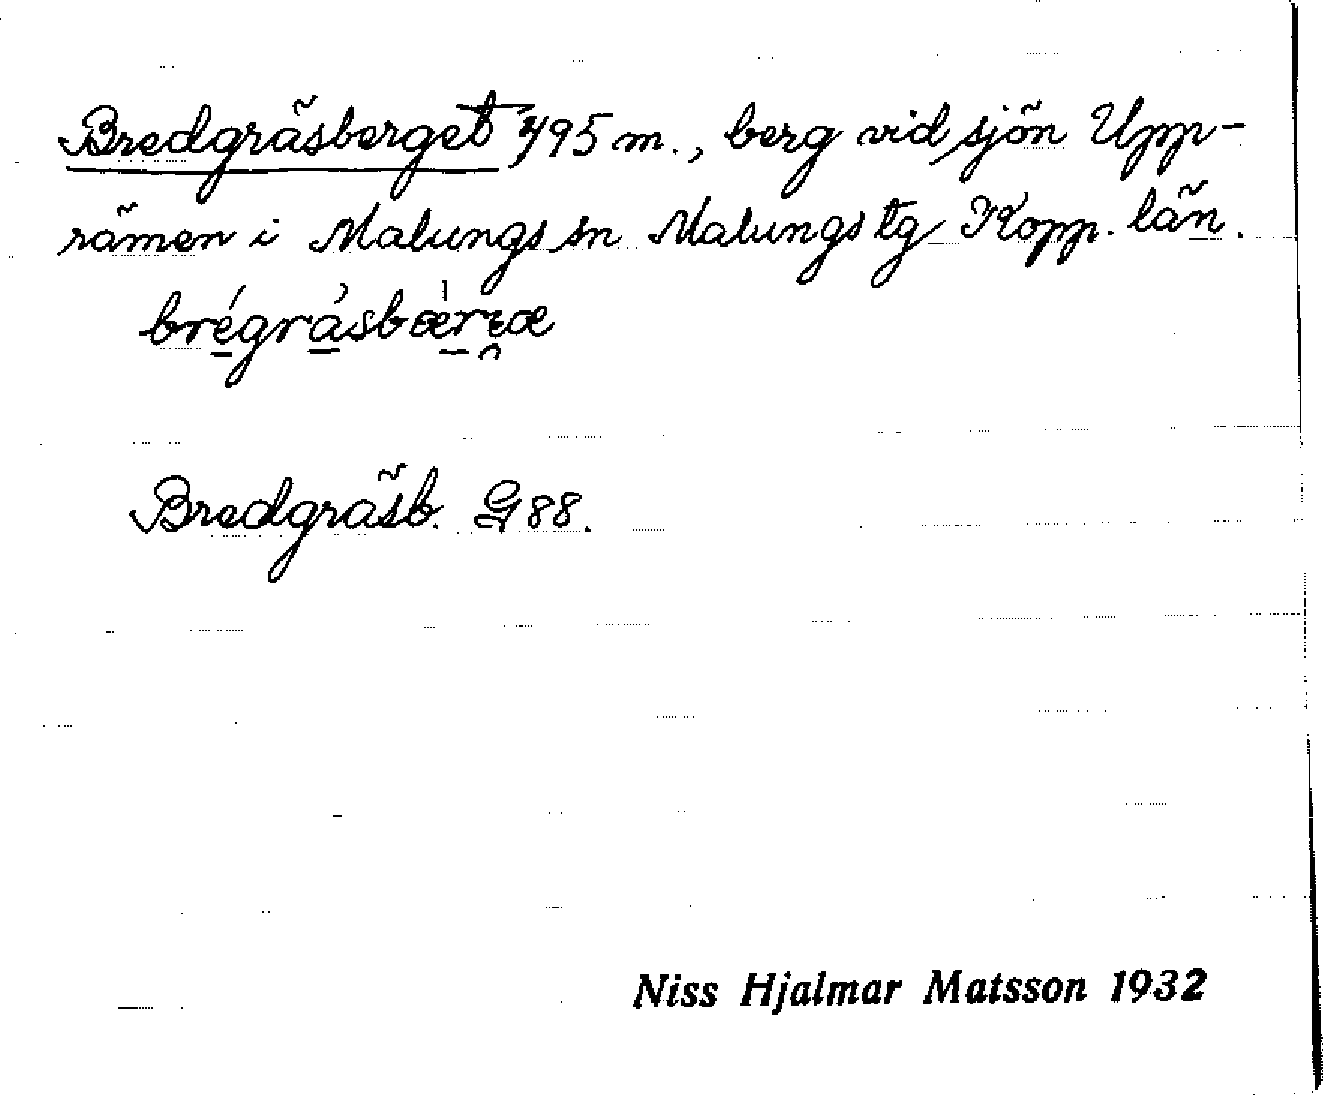 Bredgräsberget 495 m., berg vid sjön Upp-
rämen i Malungs sn Malungs tg Kopp. län.
Bredgräsb. G 88.
Niss Hjalmar Matsson 1932